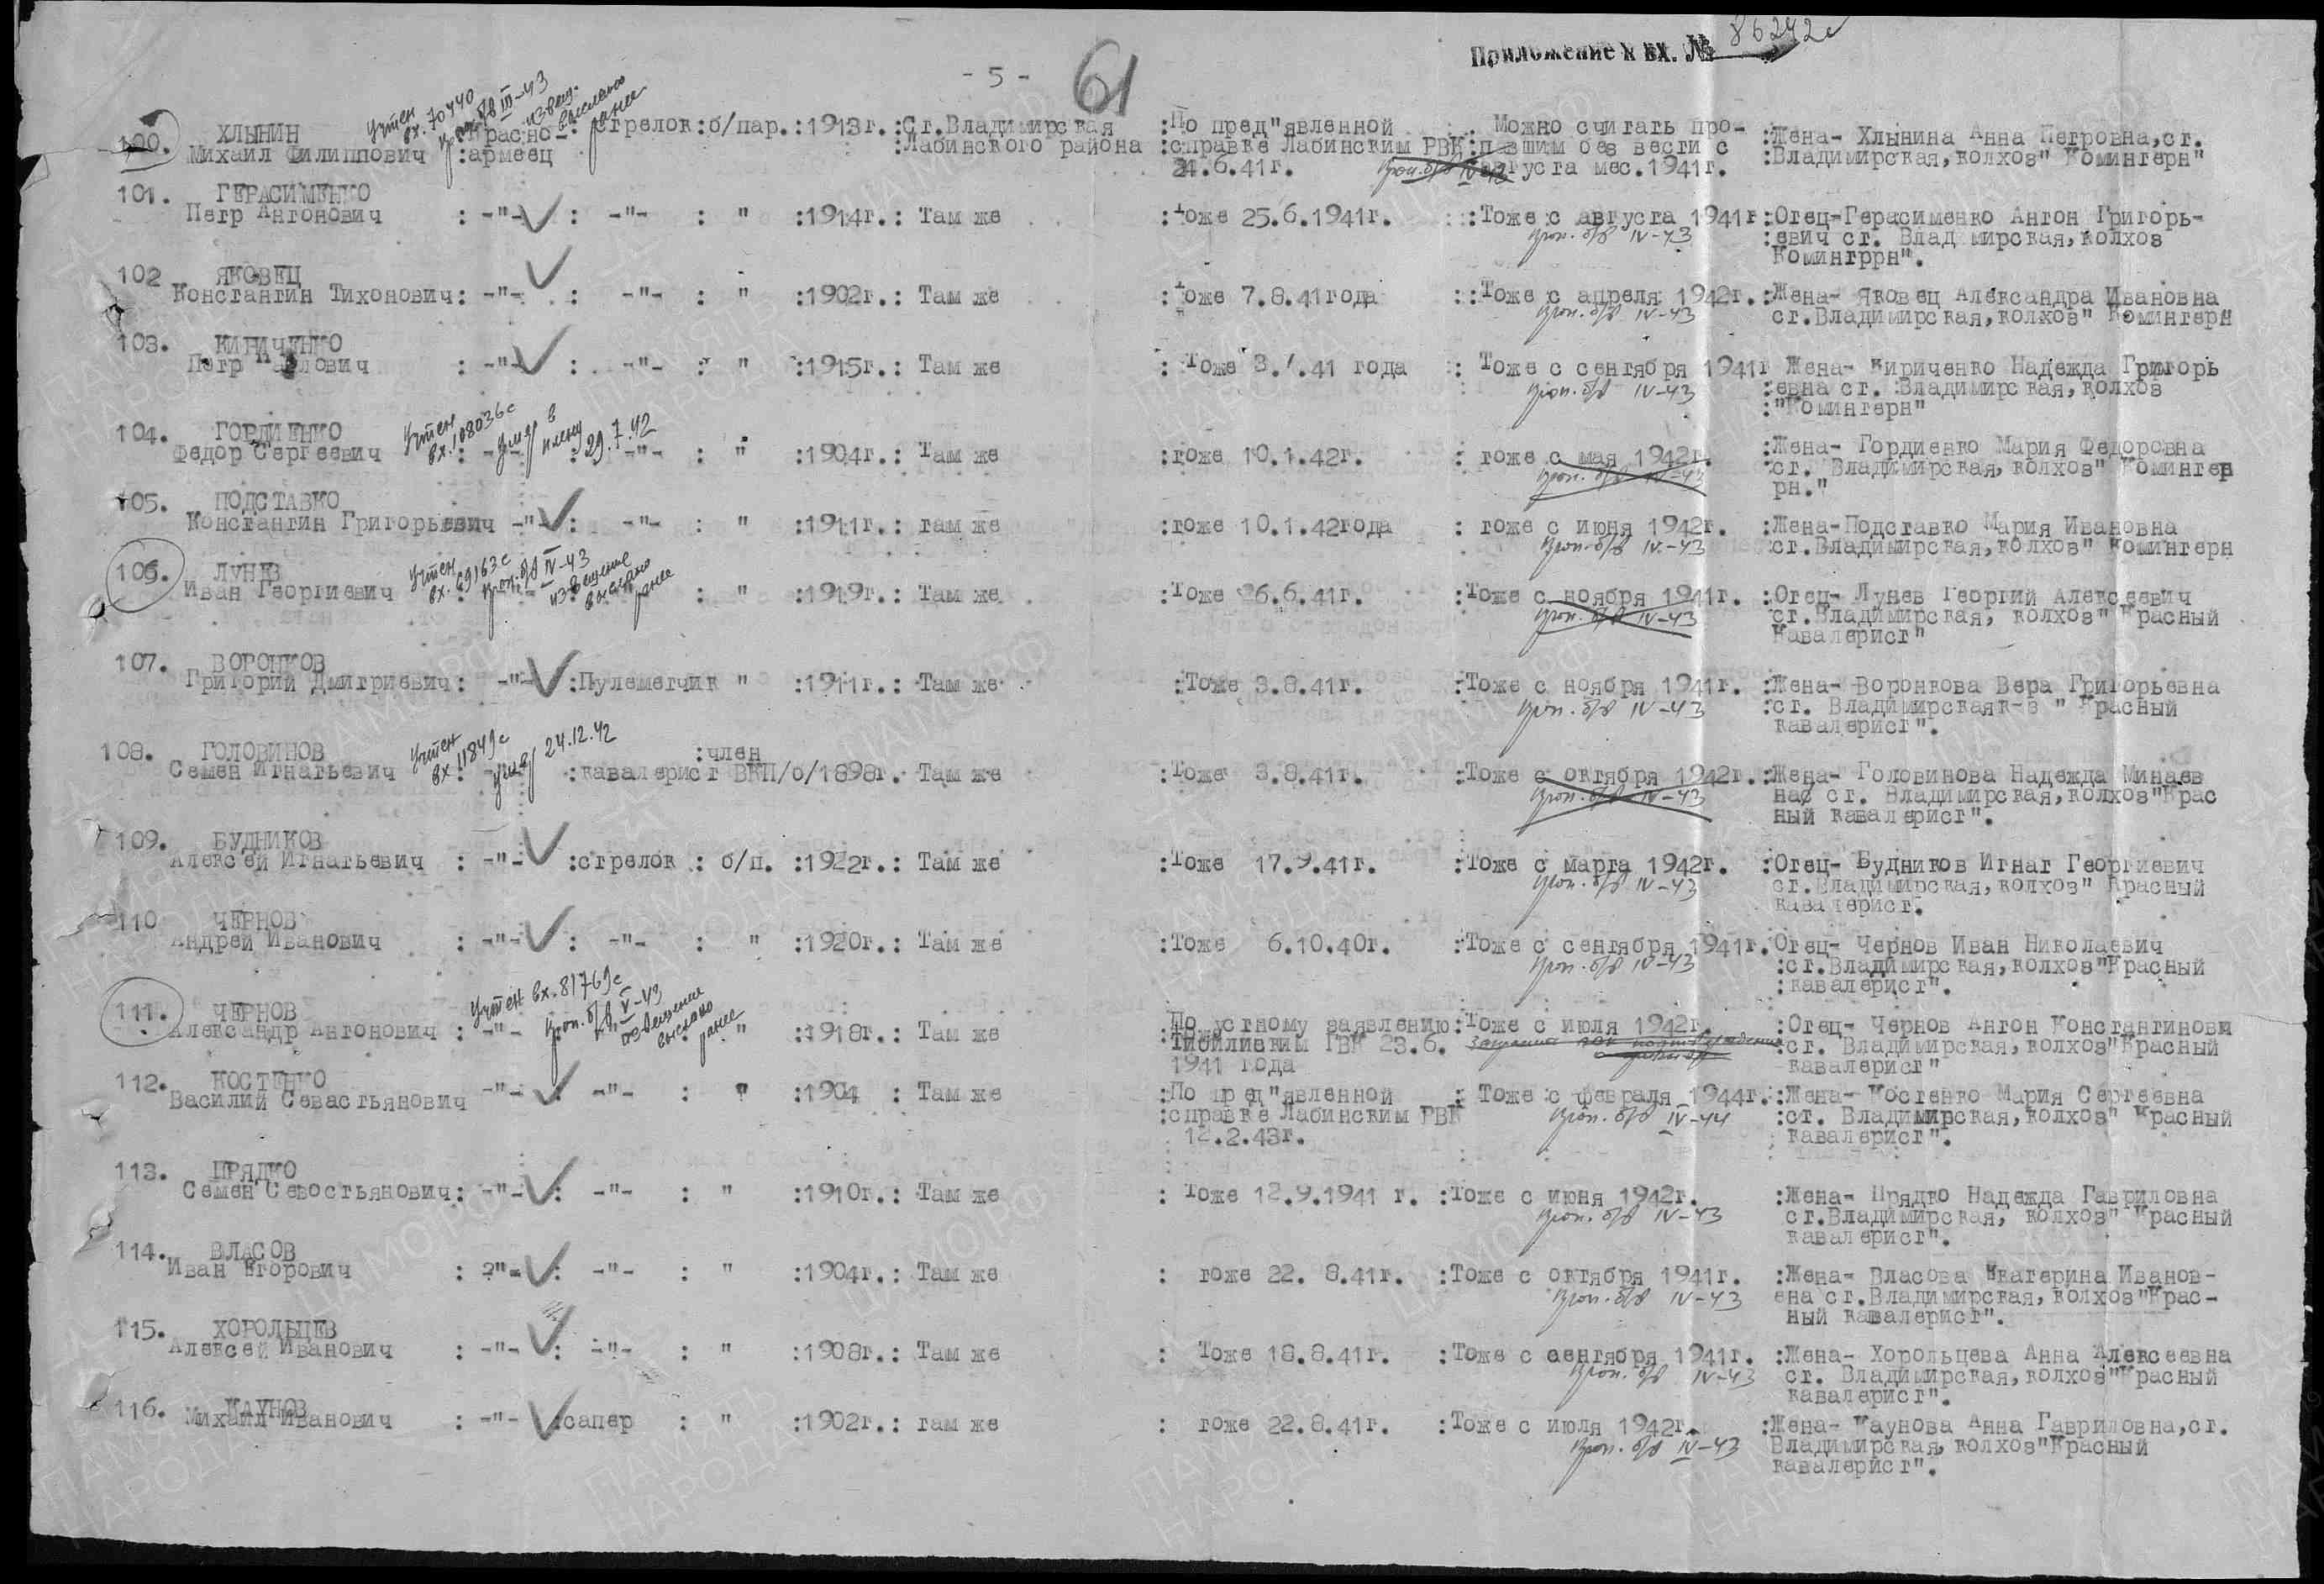 Приложение к вх. № 86242с
- 5 -
61
100. ХЛЫНИН
Михаил Филиппович :Красно-армеец :стрелок:б/пар.:1913г.:Ст.Владимирская :Лабинского района :По пред"явленной :справке Лабинским РВК 21.6.41г. : Можно считать про- :павшим без вести с августа мес.1941г. :Жена- Хлынина Анна Петровна,ст. :Владимирская,колхоз" Коминтерн"
Учтен вх. 70440 проп. б/в III-43 извещ. выслано ранее
101. ГЕРАСИМЕНКО
Петр Антонович : -"- : -"- : " :1914г.: Там же :Тоже 25.6.1941г. ::Тоже с августа 1941г :Отец-Герасименко Антон Григорь-
:евич ст. Влад мирская,колхоз
Коминтррн".
Проп. б/в IV-43
102 ЯКОВЕЦ
Константин Тихонович: -"- : -"- : " :1902г.: Там же :Тоже 7.8.41года ::Тоже с апреля 1942г.:Жена- Яковец Александра Ивановна
ст.Владимирская,колхоз" Коминтерн
Проп. б/в IV-43
103. КИРИЧЕНКО
Петр Павлович : -"- : -"- : " :1915г.: Там же : Тоже 3.7.41 года : Тоже с сентября 1941г Жена- Кириченко Надежда Григорь
:евна ст. Владимирская,колхоз
:"Коминтерн"
Проп. б/в IV-43
104. ГОРДИЕНКО
Федор Сергеевич : -"- : -"- : " :1904г.: Там же :тоже 10.1.42г. : тоже с мая 1942г. :Жена- Гордиенко Мария Федоровна
:ст. Владимирская, колхоз" Коминтер
рн."
Учтен вх.108036с умер в плену 29.7.42
Проп. б/в IV-43
105. ПОДСТАВКО
Константин Григорьевич -"- : -"- : " :1911г.: там же :тоже 10.1.42года : тоже с июня 1942г. :Жена-Подставко Мария Ивановна
:ст.Владимирская,колхоз" Коминтерн
Проп. б/в IV-43
106. ЛУНЕВ
Иван Георгиевич : " :1919г.: Там же :Тоже 26.6.41г. :Тоже с ноября 1941г. :Отец- Лунев Георгий Алексеевич
ст.Владимирская, колхоз" Красный
Кавалерист"
Учтен вх. 69163с проп. б/в IV-43 извещение выслано ранее
Проп. б/в IV-43
107. ВОРОНКОВ
Григорий Дмитриевич: -"- :Пулеметчик " :1911г.: Там же :Тоже 3.8.41г. :Тоже с ноября 1941г. :Жена- Воронкова Вера Григорьевна
:ст. Владимирскаяк-з " Красный
кавалерист".
Проп. б/в IV-43
108. ГОЛОВИНОВ
Семен Игнатьевич :кавалерист :член ВКП/б/1898г. Там же :Тоже 3.8.41г. :Тоже с октября 1942г.:Жена- Головинова Надежда Минаев
на ст. Владимирская,колхоз"Крас
ный кавалерист".
Учтен вх 11849с умер 24.12.42
Проп. б/в IV-43
109. БУДНИКОВ
Алексей Игнатьевич : -"- :стрелок : б/п. :1922г.: Там же :Тоже 17.9.41г. :Тоже с марта 1942г. :Отец- Будников Игнат Георгиевич
ст.Владимирская,колхоз" Красный
кавалерист.
Проп. б/в IV-43
110 ЧЕРНОВ
Андрей Иванович : -"- : -"- : " :1920г.: Там же :Тоже 6.10.40г. :Тоже с сентября 1941г.Отец- Чернов Иван Николаевич
:ст.Владимирская,колхоз"Красный
:кавалерист".
Проп. б/в IV-43
111. ЧЕРНОВ
Александр Антонович : -"- : -"- : " :1918г.: Там же :По устному заявлению Тбилиским ГВК 23.6. 1941 года :Тоже с июля 1942г. :Отец- Чернов Антон Константинови
:ст. Владимирская,колхоз"Красный
кавалерист"
Учтен вх.81769с Проп. б/в V-43 извещение выслано ранее
112. КОСТЕНКО
Василий Севастьянович -"- : -"- : " :1904 : Там же :По пред"явленной :справке Лабинским РВК 12.2.43г. : Тоже с февраля 1944г.:Жена- Костенко Мария Сергеевна
:ст. Владимирская,колхоз" Красный
кавалерист".
Проп. б/в IV-44
113. ПРЯДКО
Семен Севостьянович: -"- : -"- : " :1910г.: Там же : Тоже 12.9.1941 г. :Тоже с июня 1942г. :Жена- Прядко Надежда Гавриловна
ст.Владимирская, колхоз" Красный
кавалерист".
Проп. б/в IV-43
114. ВЛАСОВ
Иван Егорович : -"- : -"- : " :1904г.: Там же : тоже 22. 8.41г. :Тоже с октября 1941г. :Жена- Власова Екатерина Иванов-
ена ст.Владимирская, колхоз"Крас-
ный кавалерист".
Проп. б/в IV-43
115. ХОРОЛЬЦЕВ
Алексей Иванович : -"- : -"- : " :1908г.: Там же : Тоже 18.8.41г. :Тоже с сентября 1941г. :Жена- Хорольцева Анна Алексеевна
ст. Владимирская,колхоз"Красный
кавалерист".
Проп. б/в IV-43
116. КАУНОВ
Михаил Иванович : -"- :сапер : " :1902г.: там же : тоже 22.8.41г. :Тоже с июля 1942г. :Жена- Каунова Анна Гавриловна,ст.
Владимирская, колхоз"Красный
кавалерист".
Проп. б/в IV-43